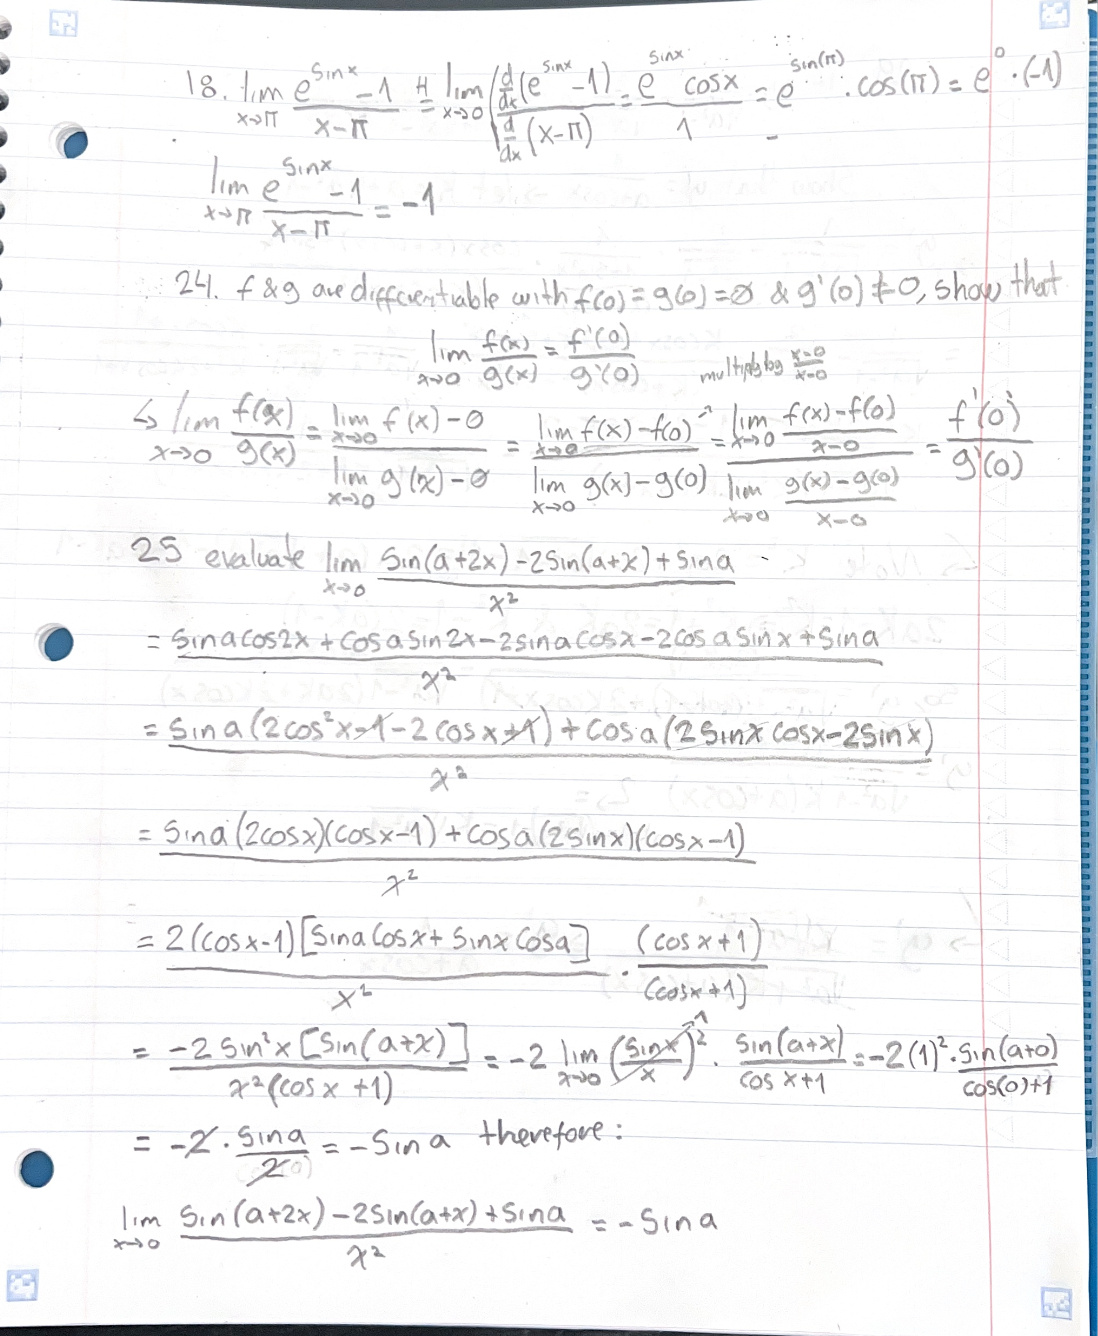 18. lim x→π (e^(sinx) - 1)/(x-π) =ᴴ lim x→0 (d/dx (e^(sinx) - 1))/(d/dx (x-π)) = (e^(sinx) cosx)/1 = e^(sin(π)) · cos(π) = e^0 · (-1)
lim x→π (e^(sinx) - 1)/(x-π) = -1
24. f & g are differentiable with f(0) = g(0) = 0 & g'(0) ≠ 0, show that
lim x→0 f(x)/g(x) = f'(0)/g'(0) multiply by (x-0)/(x-0)
↳ lim x→0 f(x)/g(x) = (lim x→0 f'(x) - 0)/(lim x→0 g'(x) - 0) = (lim x→0 f(x) - f(0))/(lim x→0 g(x) - g(0)) = (lim x→0 (f(x) - f(0))/(x-0))/(lim x→0 (g(x) - g(0))/(x-0)) = f'(0)/g'(0)
25 evaluate lim x→0 (sin(a+2x) - 2sin(a+x) + sina)/x²
= (sinacos2x + cosasin2x - 2sinacosx - 2cosasinx + sina)/x²
= (sina(2cos²x - 1 - 2cosx + 1) + cosa(2sinxcosx - 2sinx))/x²
= (sina(2cosx)(cosx-1) + cosa(2sinx)(cosx-1))/x²
= (2(cosx-1)[sinacosx + sinxcosa])/x² · (cosx+1)/(cosx+1)
= (-2sin²x[sin(a+x)])/(x²(cosx+1)) = -2 lim x→0 (sinx/x)² · sin(a+x)/(cosx+1) = -2(1)² · sin(a+0)/(cos(0)+1)
= -2 · sina/2 = -sina therefore:
lim x→0 (sin(a+2x) - 2sin(a+x) + sina)/x² = -sina